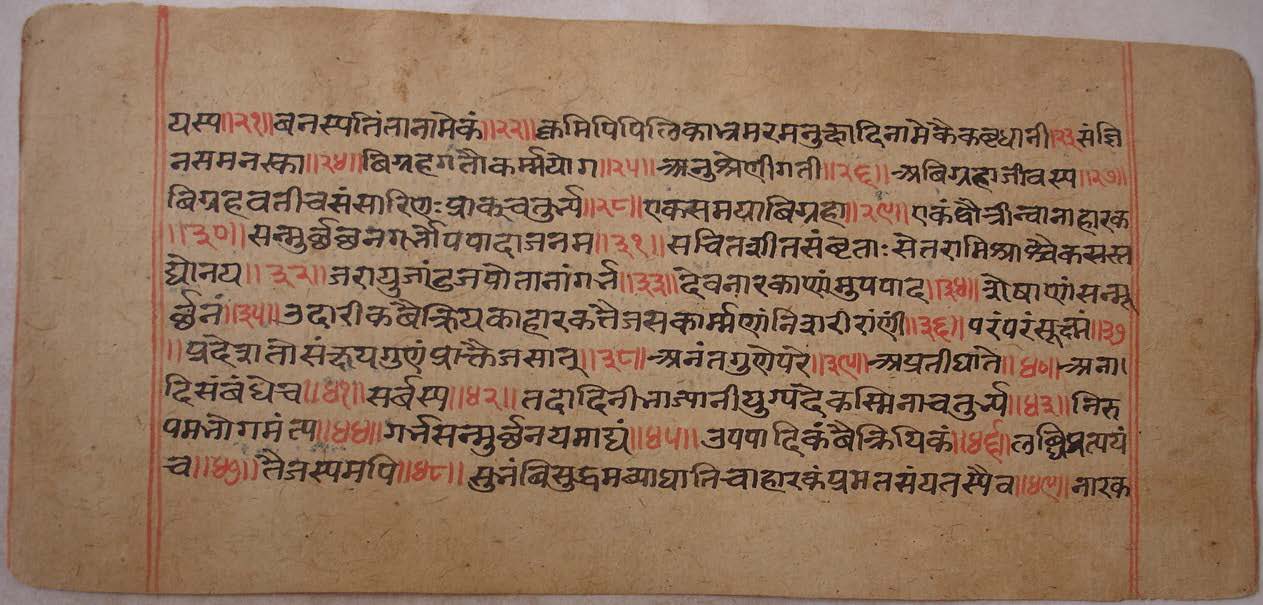 यस्य॥२१॥बनस्पतिंतानामेकं॥२२॥क्रमिपिपिलिकाभ्रमरमनुष्यादिनामेकैकबृधानी॥२३॥संज्ञि
नसमनस्का॥२४॥बिग्रहगतौकर्म्मयोग॥२५॥अनुश्रेणीगती॥२६॥अबिग्रहाजीवस्य॥२७॥
बिग्रहवतीचसंसारिणःप्राक्चतुर्भ्य॥२८॥एकसमयाबिग्रहा॥२९॥एकंद्वौत्रीन्वानाहारक
॥३०॥सन्मुर्च्छनगर्भोपपादाजनम॥३१॥सचितशीतसंबृताःसेतरामिश्राश्चैकसस्त
द्योनय॥३२॥जरायुजांडजपोतानांगर्भ॥३३॥देवनारकाणांमुपपाद॥३४॥शेषाणांसन्मू
र्च्छनं॥३५॥उदारीकबैक्रियकाहारकतैजसकार्म्मणांनिशरीरांणी॥३६॥परंपरंसूक्ष्मं॥३७
॥प्रदेशतोसंख्यगुणंप्राक्तैजसात्॥३८॥अनंतगुणेपरे॥३९॥अप्रतीघाते॥४०॥अना
दिसंबंधेच॥४१॥सर्बस्य॥४२॥तदादिनीभाज्यानीयुग्पदेकस्मिनाचतुर्भ्य॥४३॥निरु
पमभोगमंत्य॥४४॥गर्भसन्मुर्च्छनयमाद्यं॥४५॥उपपादिकंबैक्रियिकं॥४६॥लब्धिप्रत्ययं
च॥४७॥तैजस्यमपि॥४८॥सुभंबिसुद्धमव्याघातिचाहारकंप्रमतसंयतस्यैव॥४९॥नारक